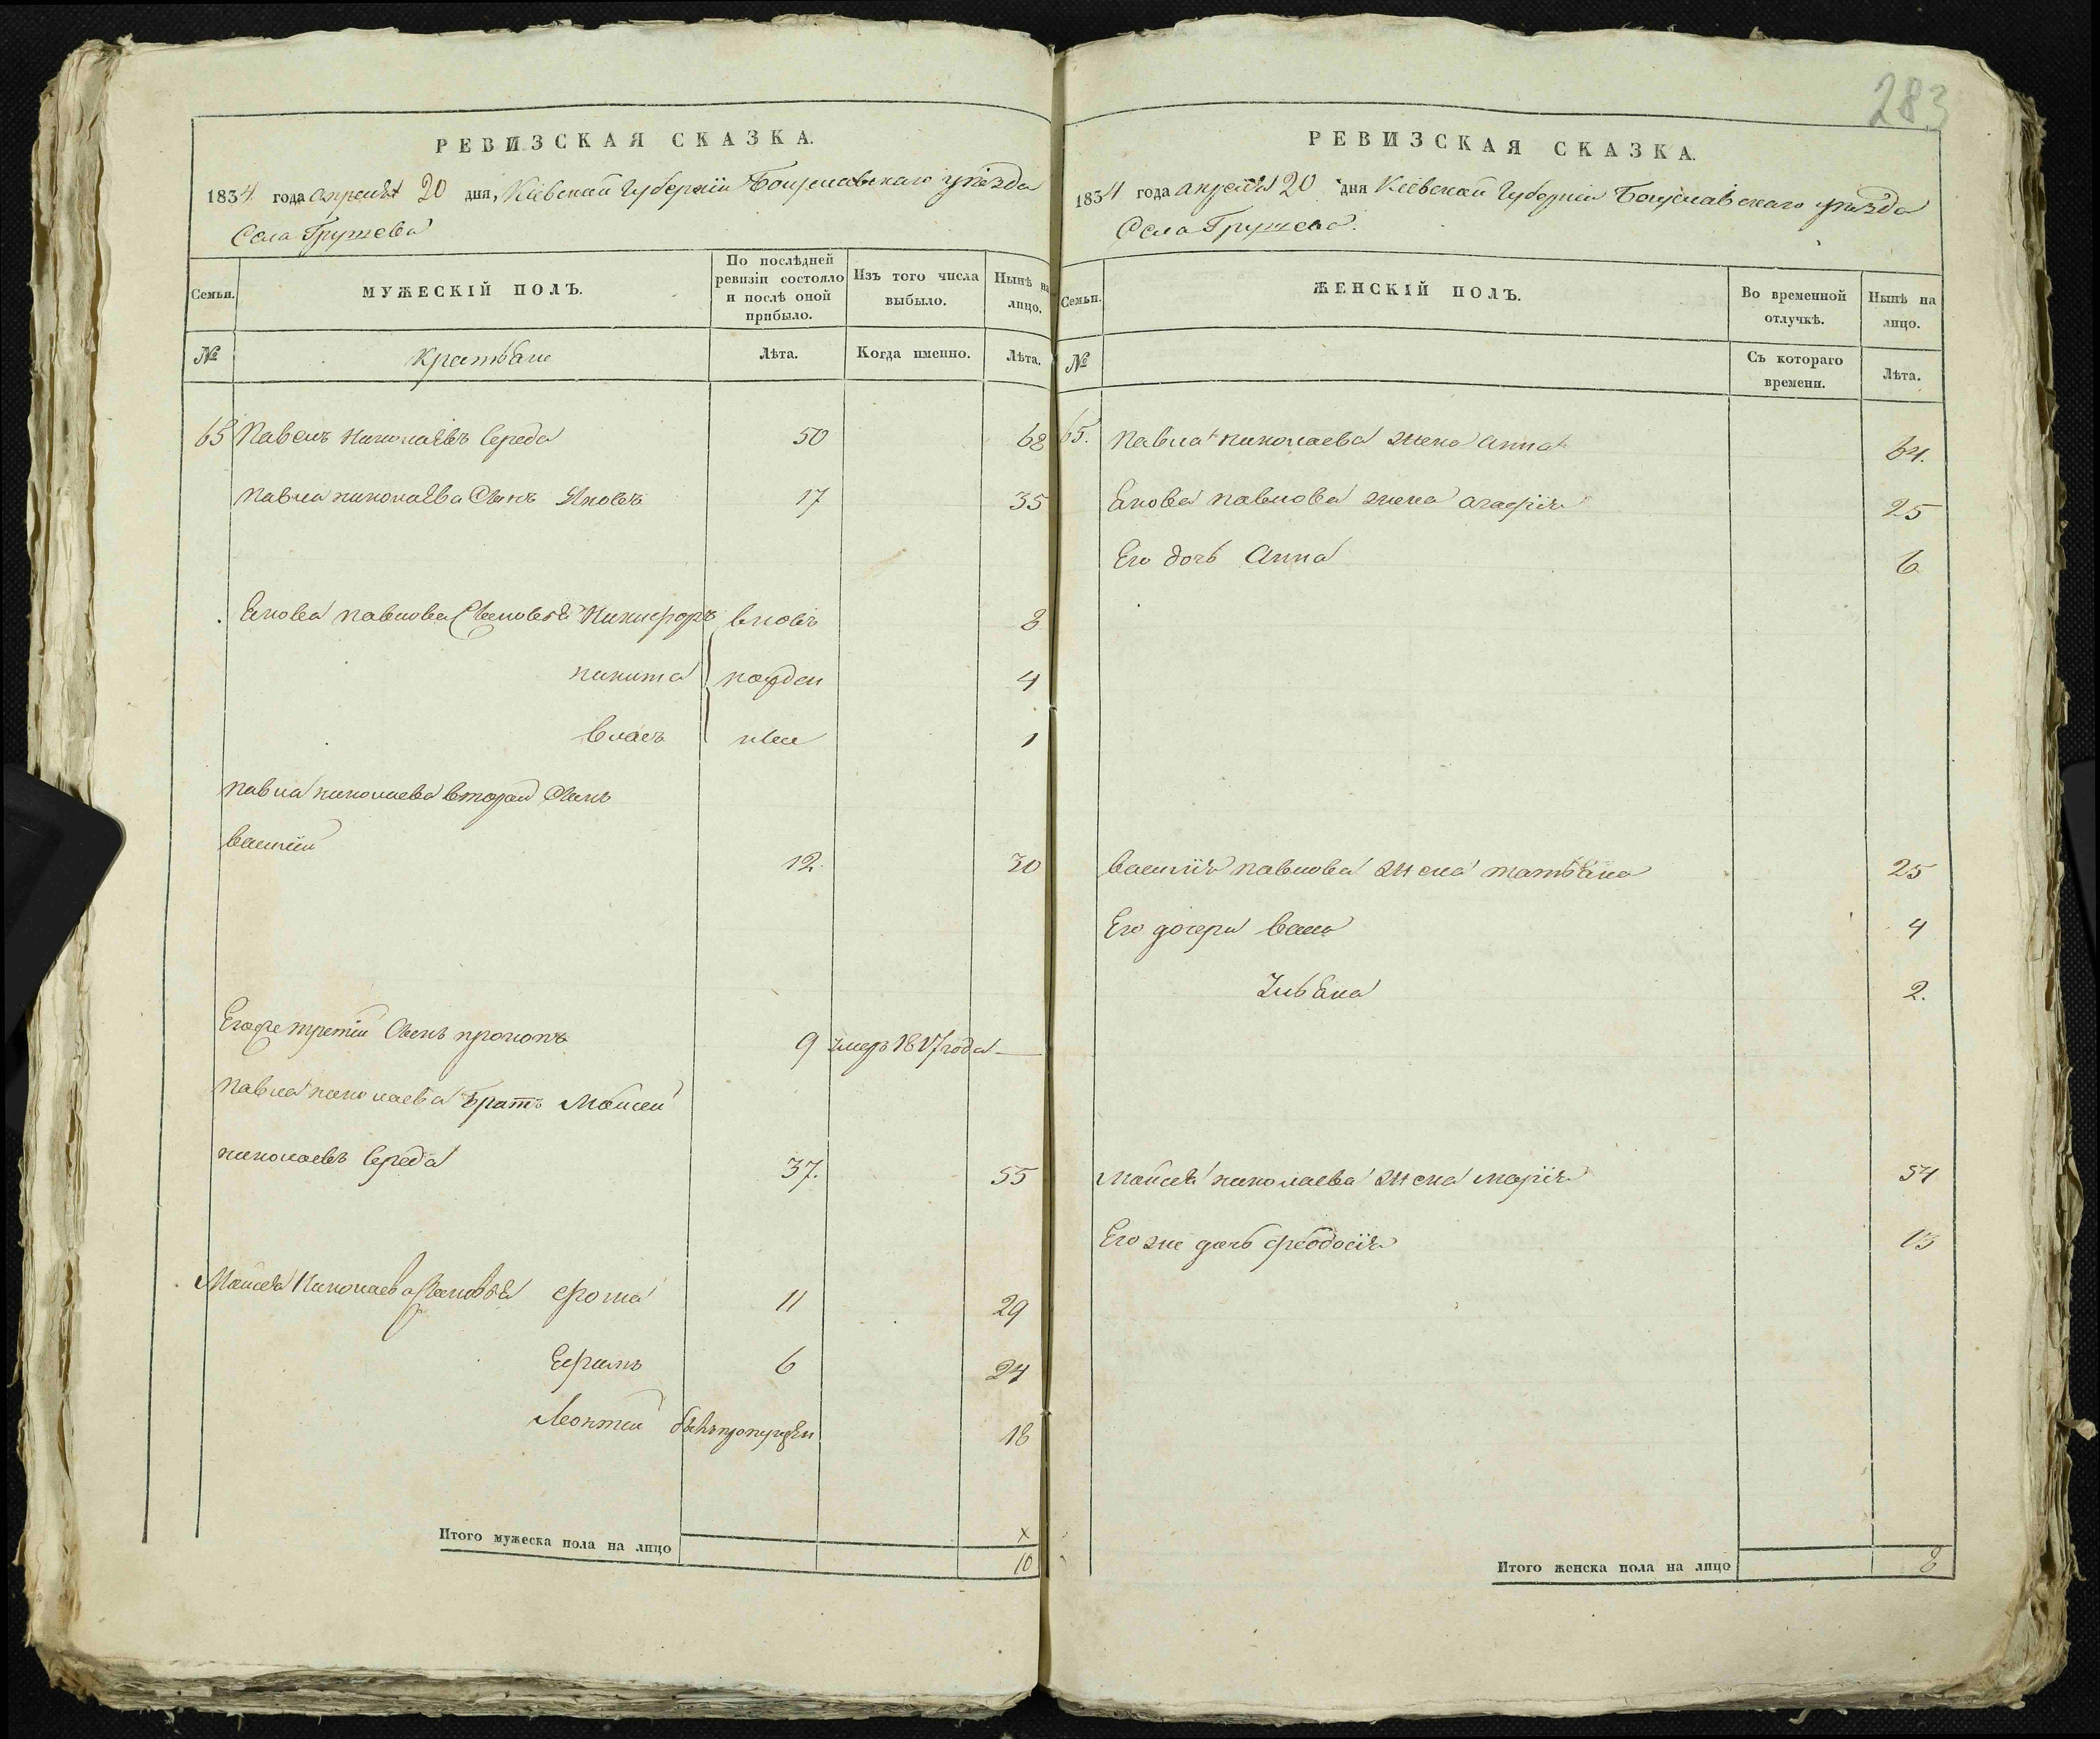 283
РЕВИЗСКАЯ СКАЗКА.
1834 года апреля 20 дня, Кіевской Губерніи Богуславскаго уѣзда
Села Грушева
Семьи.
МУЖЕСКІЙ ПОЛЪ.
По послѣдней ревизіи состояло и послѣ оной прибыло.
Изъ того числа выбыло.
Нынѣ на лицо.
№
Лѣта.
Когда именно.
Лѣта.
65 Павелъ Николаевъ Середа 50 68
Павла николаева Сынъ Яковъ 17 35
Якова павлова Сыновья Никифоръ вновь 8
никита рожден 4
власъ ные 1
Павла николаева второй Сынъ
василій 12. 30
Егоже третій Сынъ прокопъ 9 умеръ 1817 года —
Павла николаева братъ Мойсей
николаевъ Середа 37. 55
Мойсея Николаева Сыновья фома 11 29
Ефимъ 6 24
Леонтей былъ пропущен 18
Итого мужеска пола на лицо 10
РЕВИЗСКАЯ СКАЗКА.
1834 года апреля 20 дня Кіевской Губерніи Богуславскаго уѣзда
Села Грушева.
Семьи.
ЖЕНСКІЙ ПОЛЪ.
Во временной отлучкѣ.
Нынѣ на лицо.
№
Съ котораго времени.
Лѣта.
65. Павла николаева жена анна 64.
Якова павлова жена агафія 25
Его дочь Анна 6
василія павлова жена татьяна 25
Его дочери 4
Ульяна 2.
Мойсея николаева жена марія 54
Его же дочь феодосія 13
Итого женска пола на лицо 8